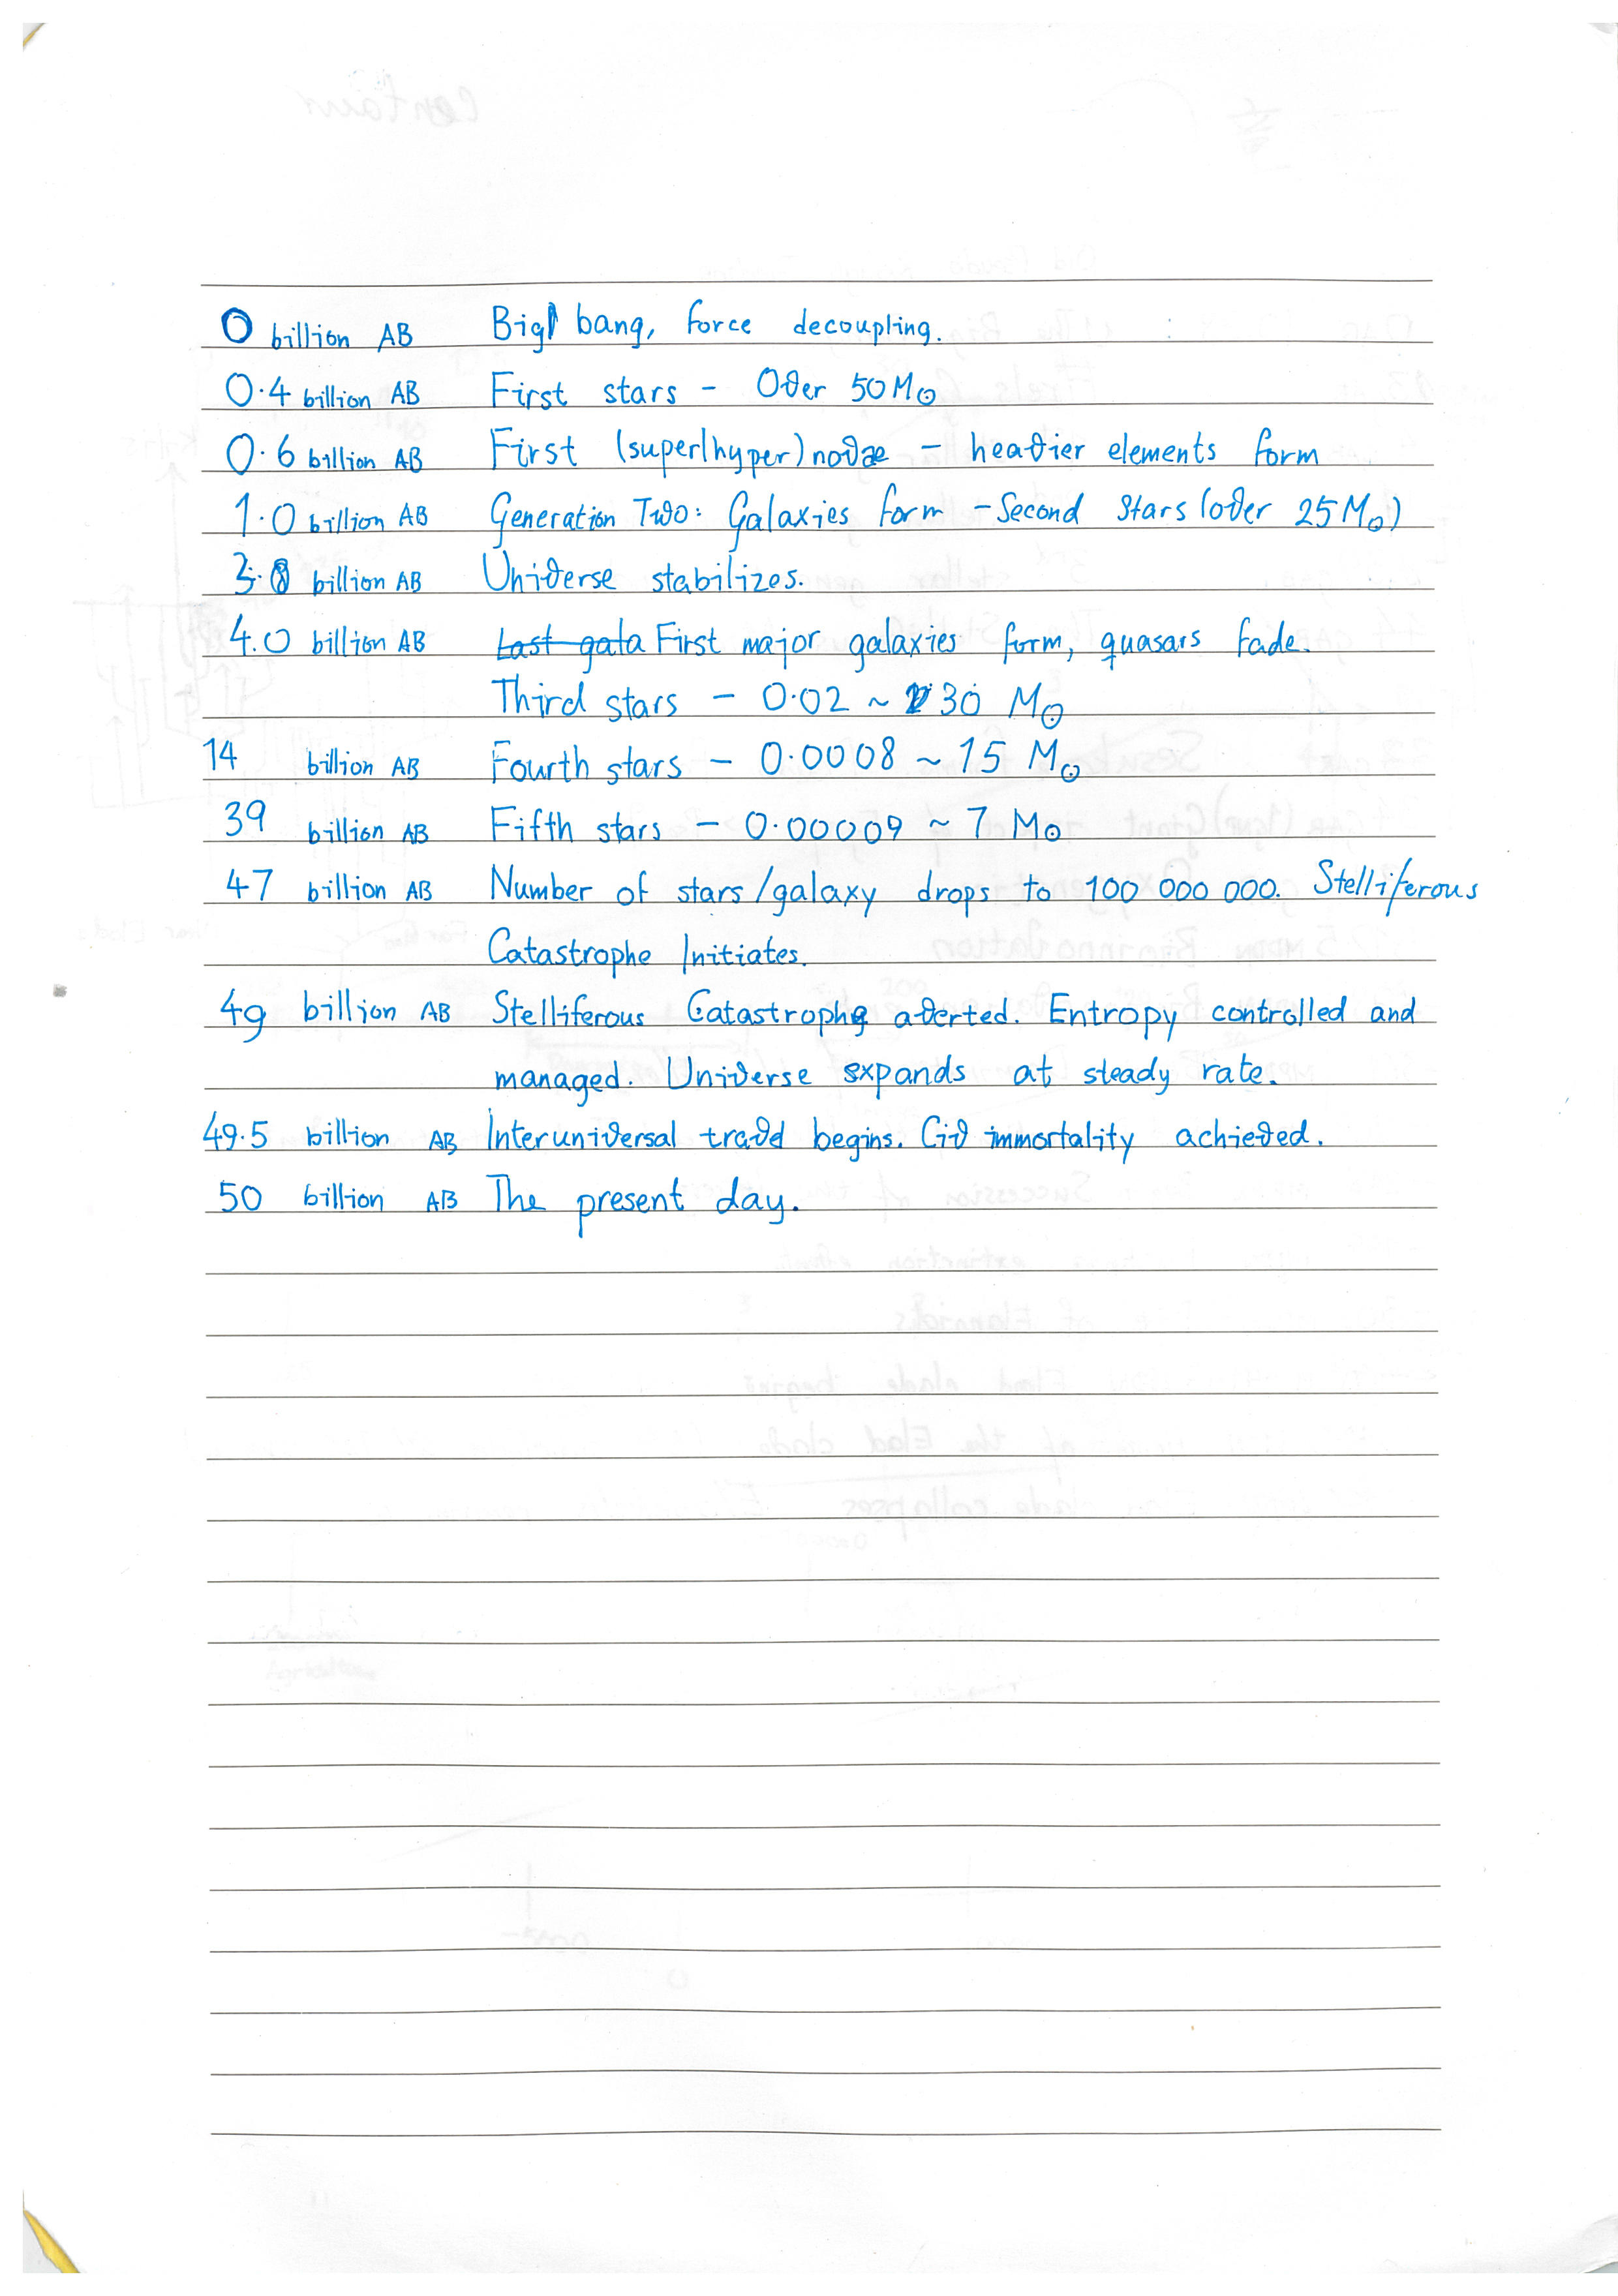 0 billion AB Big bang, force decoupling.
0.4 billion AB First stars - Over 50 M☉
0.6 billion AB First (super/hyper)novae - heavier elements form
1.0 billion AB Generation Two: Galaxies form - Second Stars (over 25 M☉)
3.8 billion AB Universe stabilizes.
4.0 billion AB Last gala First major galaxies form, quasars fade.
Third stars - 0.02 ~ 30 M☉
14 billion AB Fourth stars - 0.0008 ~ 15 M☉
39 billion AB Fifth stars - 0.00009 ~ 7 M☉
47 billion AB Number of stars/galaxy drops to 100 000 000. Stelliferous
Catastrophe Initiates.
49 billion AB Stelliferous Catastrophe averted. Entropy controlled and
managed. Universe expands at steady rate.
49.5 billion AB Interuniversal travel begins. Civ immortality achieved.
50 billion AB The present day.